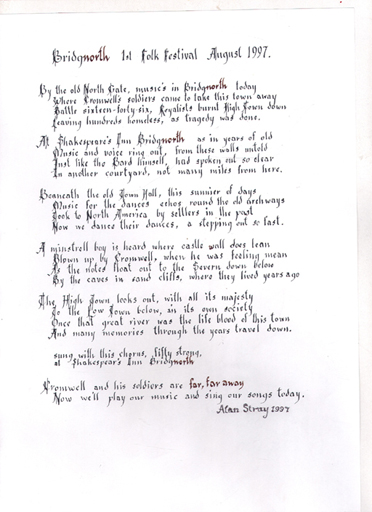 Bridgnorth 1st Folk Festival August 1997.
By the old North Gate, music's in Bridgnorth today
Where Cromwell's soldiers came to take this town away
Battle sixteen-forty-six, Royalists burnt High Town down
Leaving hundreds homeless, as tragedy was done.
At Shakespeare's Inn Bridgnorth as in years of old
Music and voice ring out, from these walls untold
Just like the Bard himself, had spoken out so clear
In another courtyard, not many miles from here.
Beaneath the old Town Hall, this summer of days
Music for the dances echos round the old archways
Took to North America by settlers in the past
Now we dance their dances, a stepping out so fast.
A minstrell boy is heard where castle wall does lean
Blown up by Cromwell, when he was feeling mean
As the notes float out to the Severn down below
By the caves in sand cliffs, where they lived years ago
The High Town looks out, with all its majesty
To the Low Town below, in its own society
Once that great river was the life blood of this town
And many memories through the years travel down.
sung with this chorus, fifty strong,
at Shakespear's Inn Bridgnorth
Cromwell and his soldiers are far, far away
Now we'll play our music and sing our songs today.
Alan Stray 1997